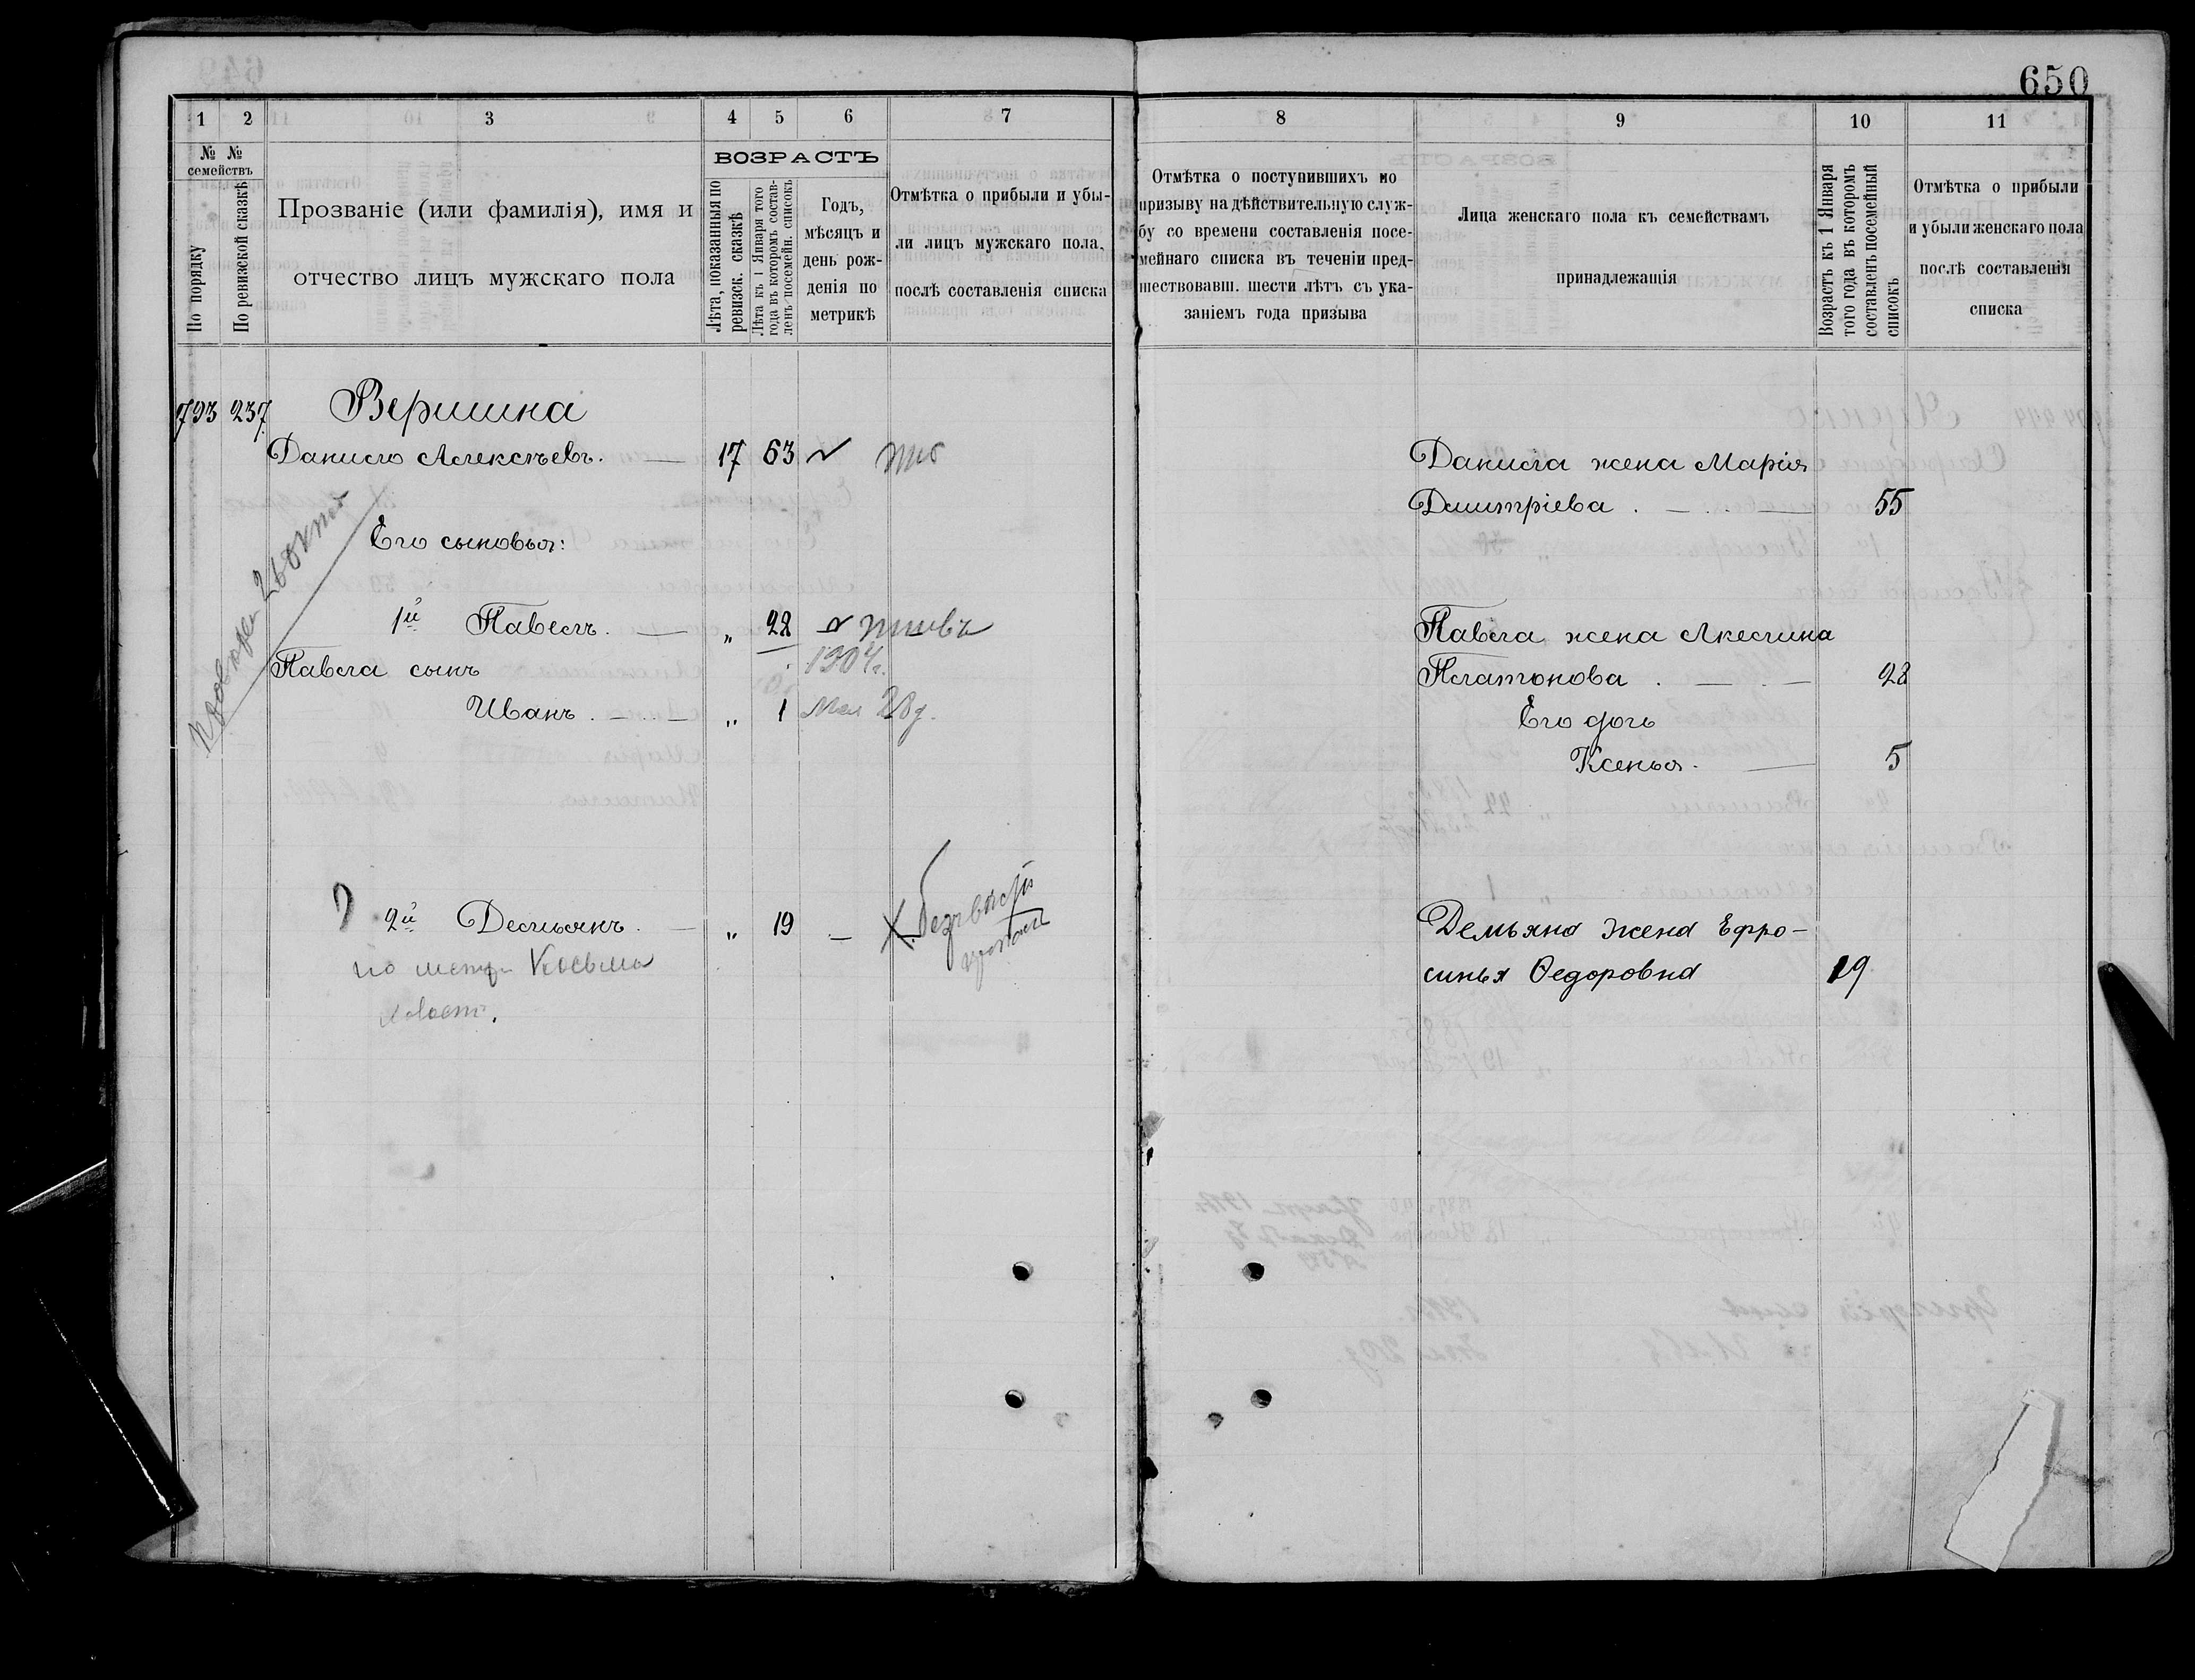 650
1 2 3 4 5 6 7
№ № семействъ
По порядку
По ревизской сказкѣ
Прозваніе (или фамилія), имя и
отчество лицъ мужскаго пола
ВОЗРАСТЪ
Лѣта, показанныя по
ревизск. сказкѣ
Лѣта къ 1 Января того
года въ которомъ состав-
ленъ посемейн. списокъ
Годъ,
мѣсяцъ и
день рож-
денія по
метрикѣ
Отмѣтка о прибыли и убы-
ли лицъ мужскаго пола,
послѣ составленія списка
793 237 Вершина
Данило Алексѣевъ. 17 63
Его сыновья:
1й Павелъ. „ 22 живъ
Павла сынъ 1904г.
Иванъ. „ 1 Мая 28д.
2й Демьянъ. „ 19 – Безвѣстн
по метр Косьма
холост.
8 9 10 11
Отмѣтка о поступившихъ по
призыву на дѣйствительную служ-
бу со времени составленія посе-
мейнаго списка въ теченіи пред-
шествовавш. шести лѣтъ съ ука-
заніемъ года призыва
Лица женскаго пола къ семействамъ
принадлежащія
Возрастъ къ 1 Января
того года въ которомъ
составленъ посемейный
списокъ
Отмѣтка о прибыли
и убыли женскаго пола
послѣ составленія
списка
Данила жена Марія
Дмитріева . 55
Павла жена Акелина
Платонова . 28
Его дочь
Ксенья. 5
Демьяна жена Ефро-
синья Федоровна 19